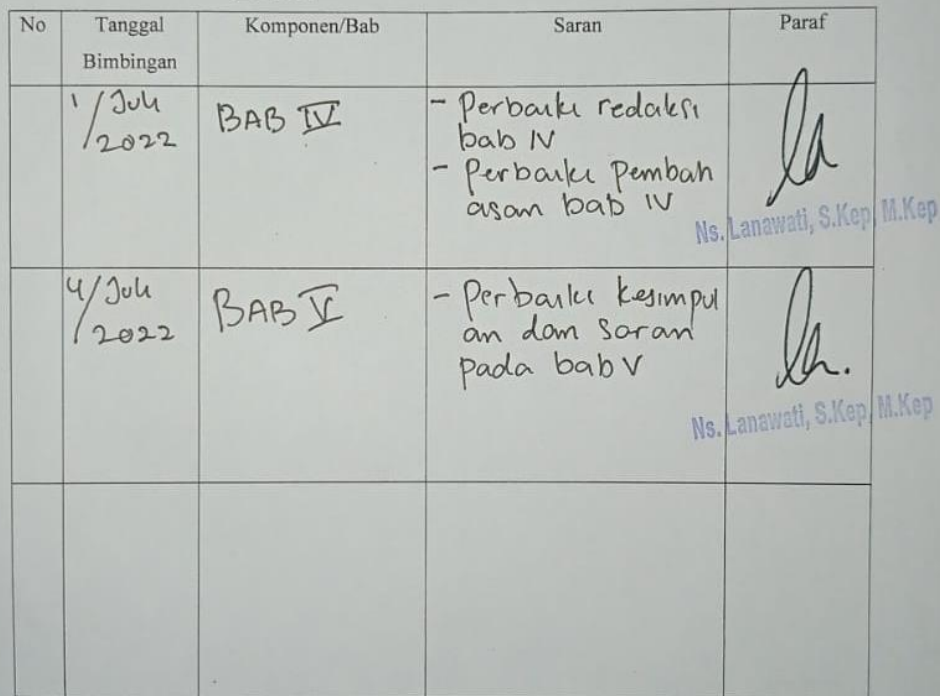 No Tanggal Bimbingan Komponen/Bab Saran Paraf
1/Juli 2022
BAB IV
- Perbaiki redaksi
bab IV
- Perbaiki Pembah
asan bab IV
Ns. Lanawati, S.Kep, M.Kep
4/Juli 2022
BAB V
- Perbaiki kesimpul
an dan saran
pada bab V
Ns. Lanawati, S.Kep, M.Kep